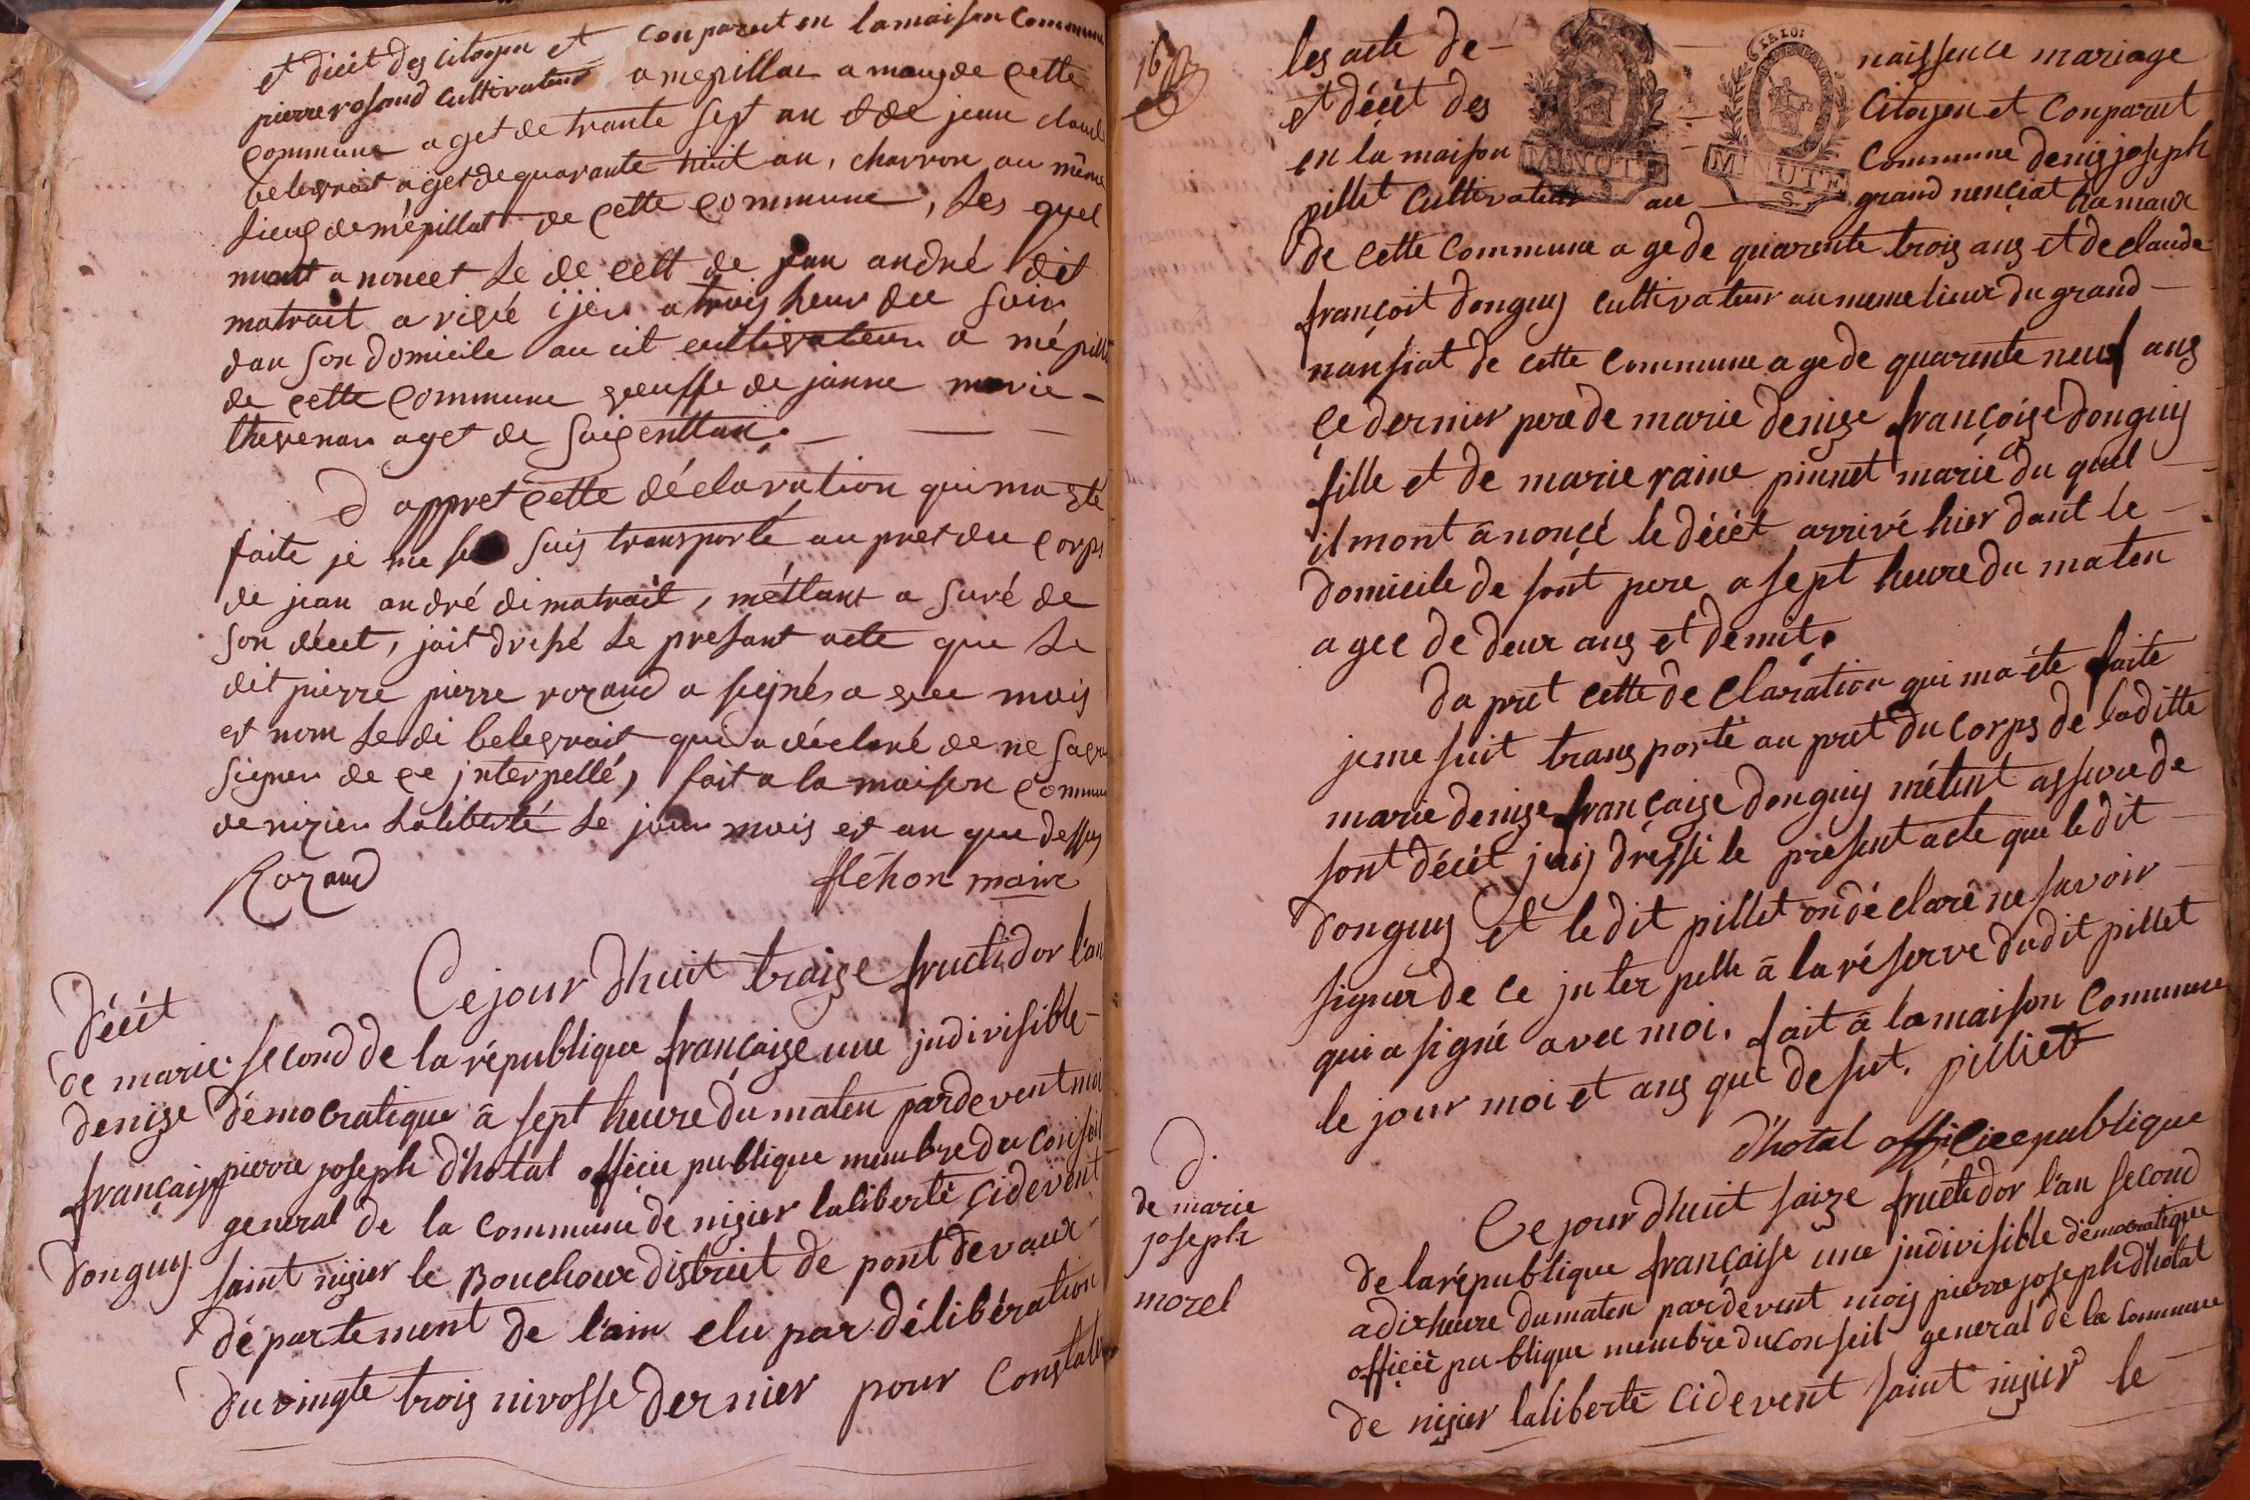 et décét des citoyen et conparut en la maison commune
pierre rosand cultivateur a mepillat a maus de cette
commune aget de trante sept an & de jean claude
belegrait aget de quarante huit an, charron au même
lieus de mépillat de cette commune, les quel
mont anoncet le décett de jean andré dit
matrait arivé ijer a trois heur du soir
dan son domicile au cit cultivateur a mépillat
de cette commune veuffe de janne marie -
thevenar aget de
d appret cette déclaration qui ma été
faite je me suis transporté au pret du corps
de jean andré di matrait, méttant a suré de
son décét, jait dressé le presant acte que le
dit pierre pierre rozand a signés avec mois
et nom le di belegrait qui a déclaré de ne savoir
signer de ce interpellé, fait a la maison commune
de nizier laliberté le jour mois et an que dessus
Rozand fléhon maire
Décét
de marie
denise
françoise
donguy.
Ce jour dhuit traize fructidor l'an
second de la république françaize une jndivisible -
démocratique â sept heure du maten pardevent moi
pierre joseph d'hotal officie publique membre du conseil
general de la commune de nizier laliberté cidevent
saint nizier le Bouchoux district de pont de vaux -
département de l'ain elu par délibération
du vingte trois nivosse dernier pour constater
16
les acte de - naissence mariage
et décét des citoyen et conparut
en la maison commune denis joseph
pillet cultivateur au grand nenciat hamaux
MINUTE
S.
LA LOI
MINUTE
S.
de cette commune a ge de quarente trois ans et de claude
françoit donguy cultivateur au meme lieux du grand -
nansiat de cette commune a ge de quarente neuf ans
ce dernier pere de marie denize françoize donguy
fille et de marie raine pinnet marié du quel -
il mont ânoncé le décét arrivé hier dant le -
domicile de sont pere a sept heure du maten
a gee de deux ans et demit.
Da pret cette de claration qui ma éte faite
je me suit trans porté au pret du corps de laditte
marie denize françaize donguy métent assure de
sont décét jais dressé le present acte que le dit -
donguy et le dit pillet on déclaré ne savoir -
signer de ce jnter pelle â la réserve dudit pillet
qui a signé avec moi. fait â la maison commune
le jour moi et ans que desut. pilliet
d'hotal officiee publique
D.
de marie
joseph
morel
Ce jour dhuit saize fructidor l'an second
de la république française une jndivisible démocratique
a dix heure du maten par devent mois pierre joseph d'hotal
officié publique membre du conseil general de la commune
de nizier laliberté cidevent saint nizier le -